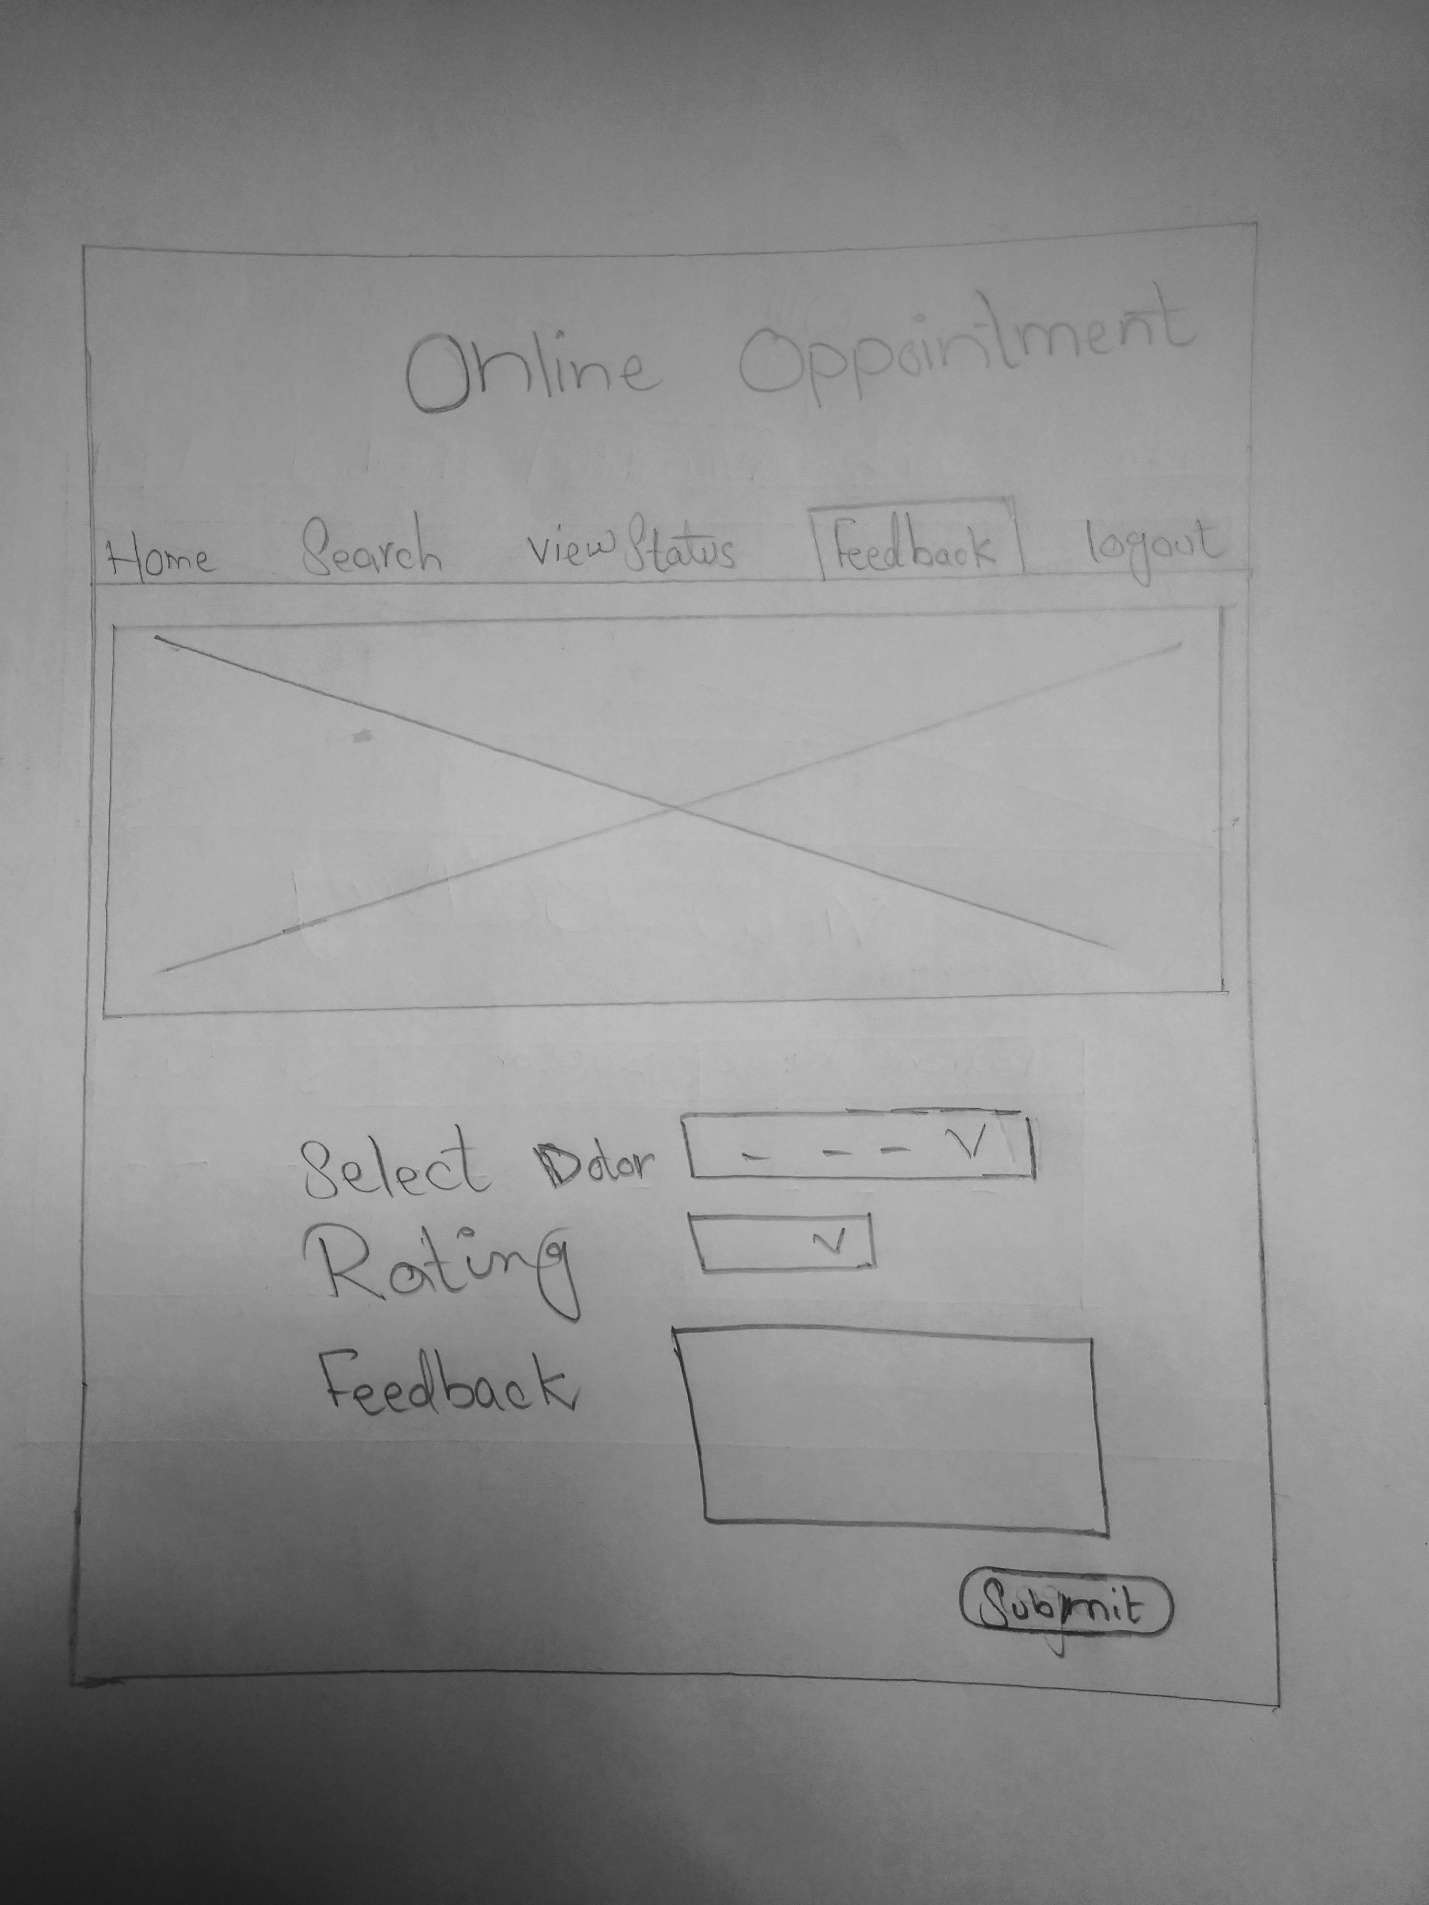 Online Oppointment
Home Search view Status Feedback logout
Select Dotor
Rating
Feedback
Submit